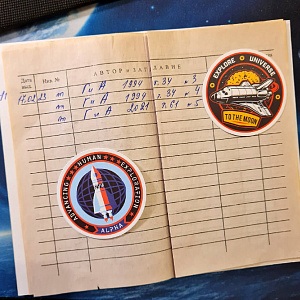 АВТОР и ЗАГЛАВИЕ
Дата выд.
Инв. №
17.02.23 т ГиА 1994 т.34 №3
т ГиА 1994 т.34 №4
т ГиА 2021 т.61 №5
EXPLORE UNIVERSE
TO THE MOON
ADVANCING HUMAN EXPLORATION
ALPHA